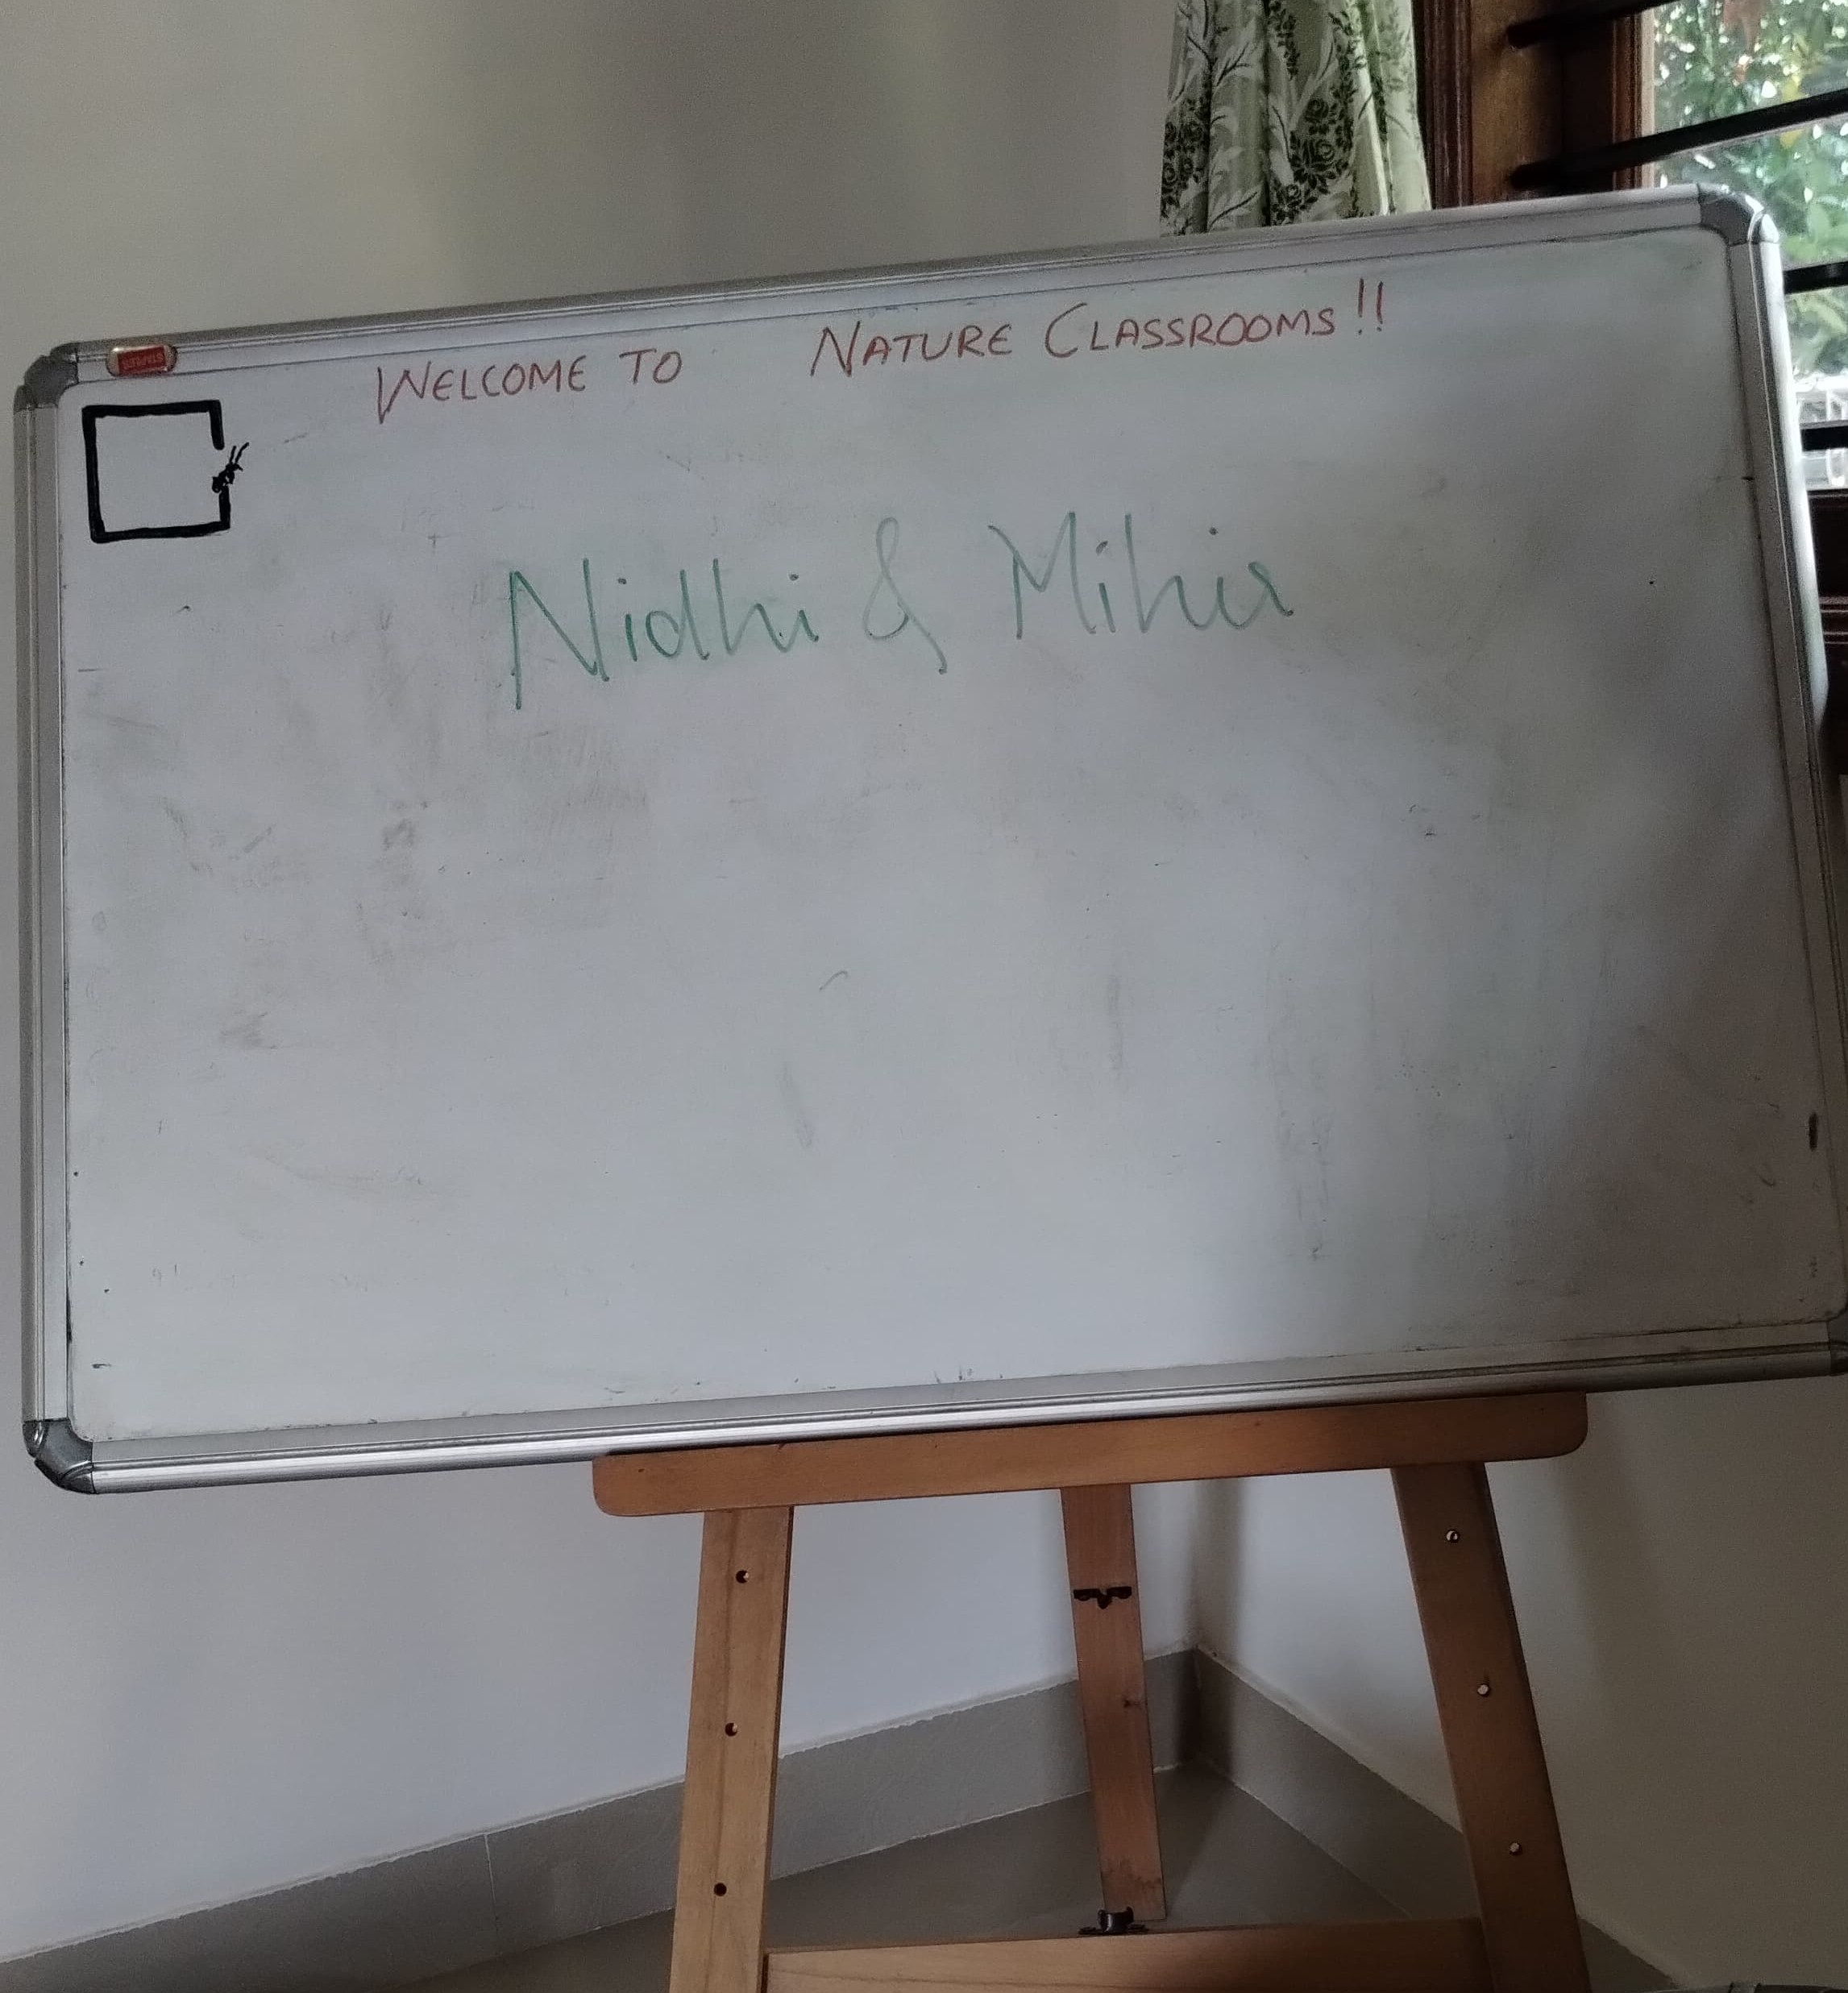 WELCOME TO NATURE CLASSROOMS!!
Nidhi & Mihir